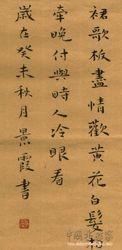 裙歌板盡情歡黃花白髮相
牽晚付與時人冷眼看
歲在癸未秋月景霞書